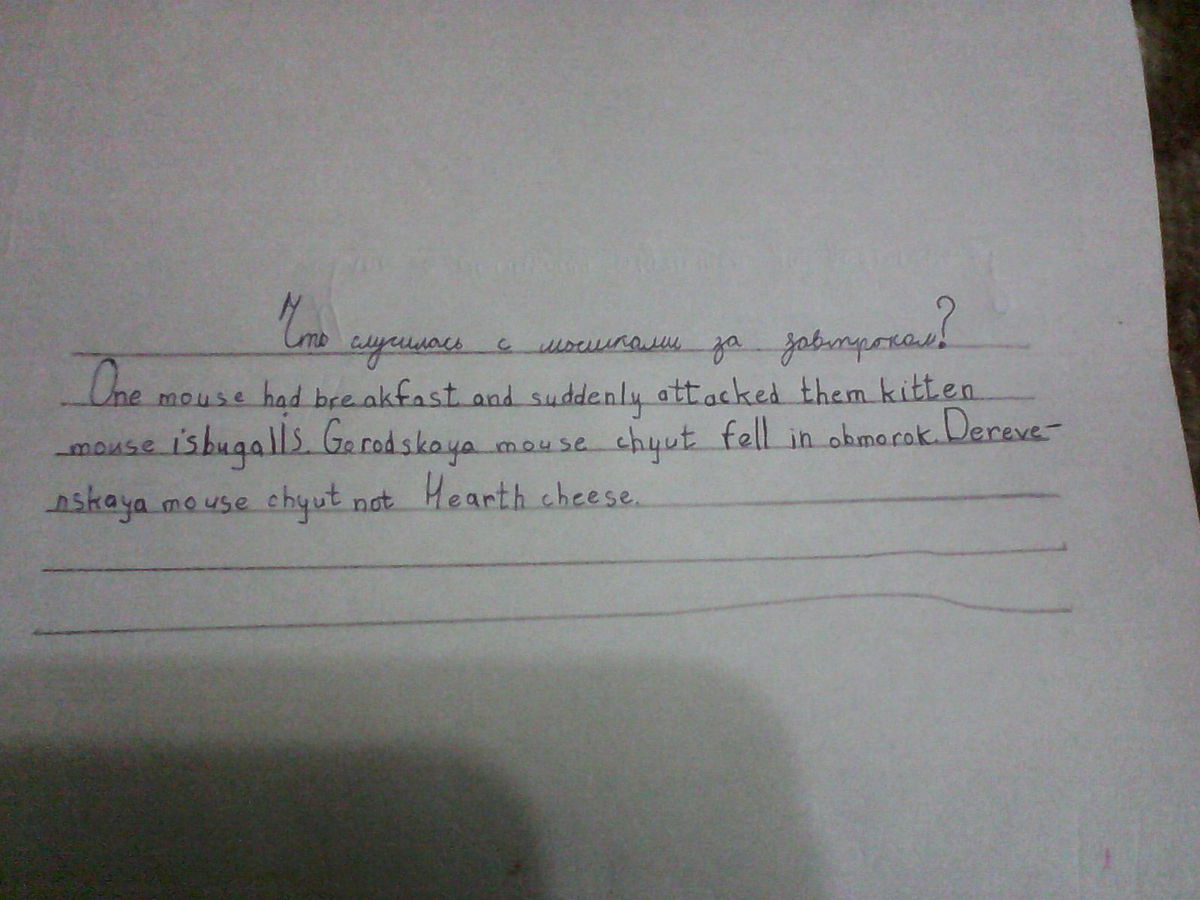 Что случилась с мышками за завтроком?
One mouse had breakfast and suddenly attacked them kitten
mouse isbugalis. Gorodskaya mouse chyut fell in obmorok. Dereve-
nskaya mouse chyut not Hearth cheese.